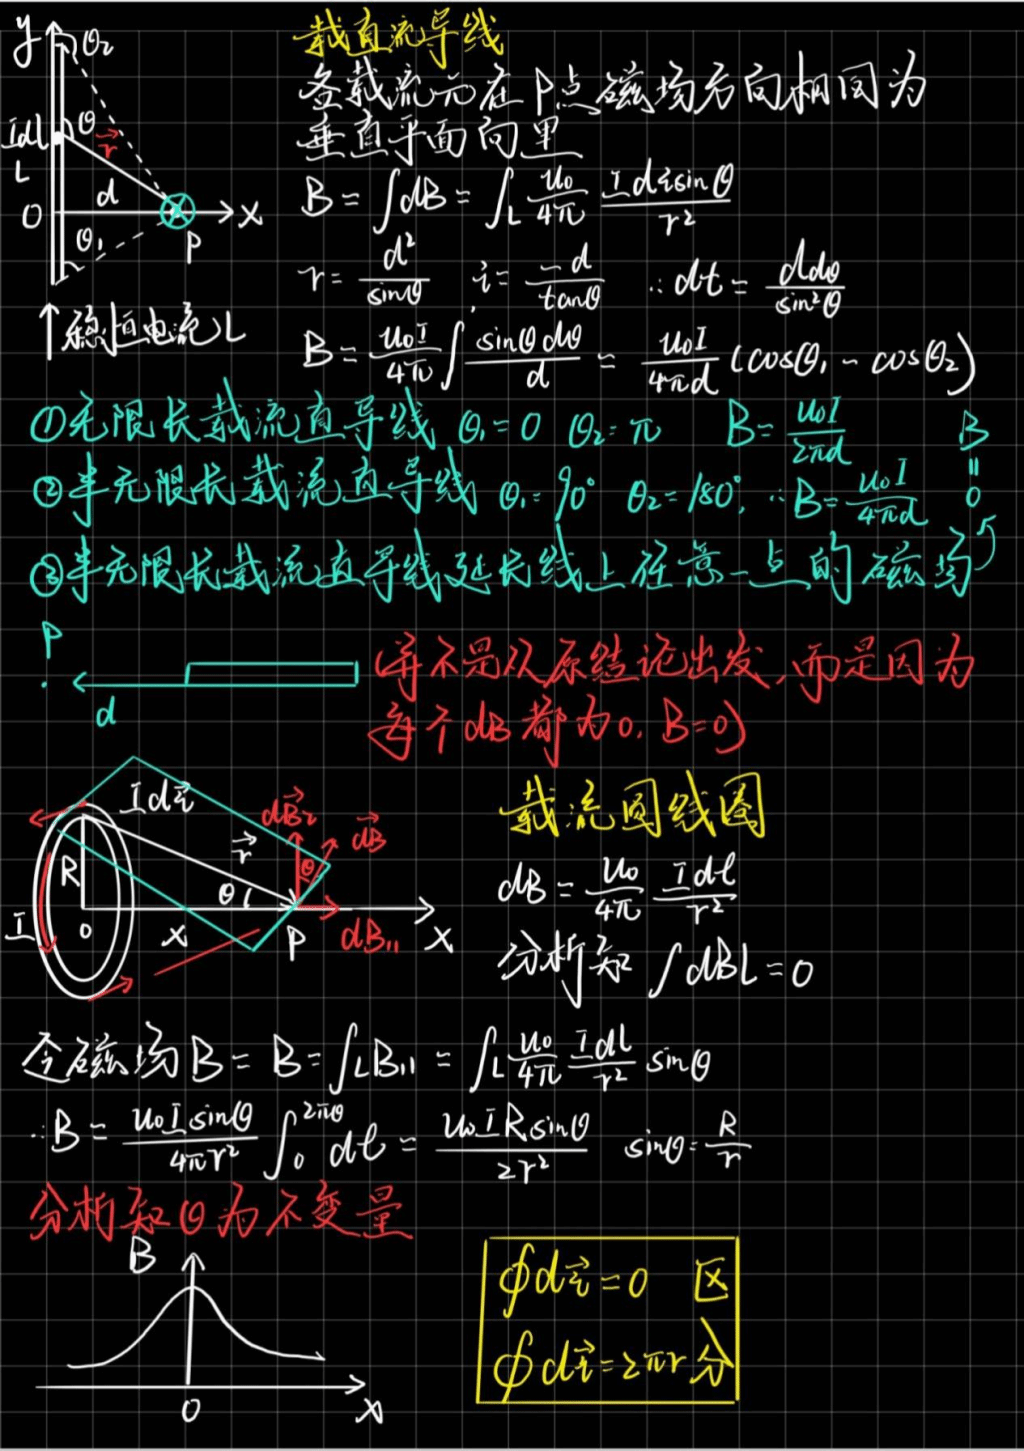 y θ₂
载直流导线
各载流元在P点磁场方向相同为
垂直平面向里
Idl θ r⃗
L d
O θ₁ P x
↑稳恒电流L
B = ∫dB = ∫L u₀/4π Idl sinθ/r²
r = d²/sinθ l = -d/tanθ ∴dl = ddθ/sin²θ
B = u₀I/4π ∫ sinθdθ/d = u₀I/4πd (cosθ₁ - cosθ₂)
①无限长载流直导线 θ₁=0 θ₂=π B=u₀I/2πd
②半无限长载流直导线 θ₁=90° θ₂=180°, ∴B=u₀I/4πd
③半无限长载流直导线延长线上任意一点的磁场
B=0
P
d
(并不是从原结论出发,而是因为
每个dB都为0, B=0)
载流圆线圈
Idl⃗ r⃗ dB⃗₂ dB⃗ θ
R θ
I O x P dB₁₁ x
dB = u₀/4π Idl/r²
分析知 ∫dBL=0
令磁场B = B = ∫LB₁₁ = ∫L u₀/4π Idl/r² sinθ
∴B = u₀I sinθ/4πr² ∫₀^2πθ dl = u₀IR sinθ/2r² sinθ=R/r
分析知θ为不变量
B
O x
∮dl⃗=0 区
∮dl⃗=2πr 分